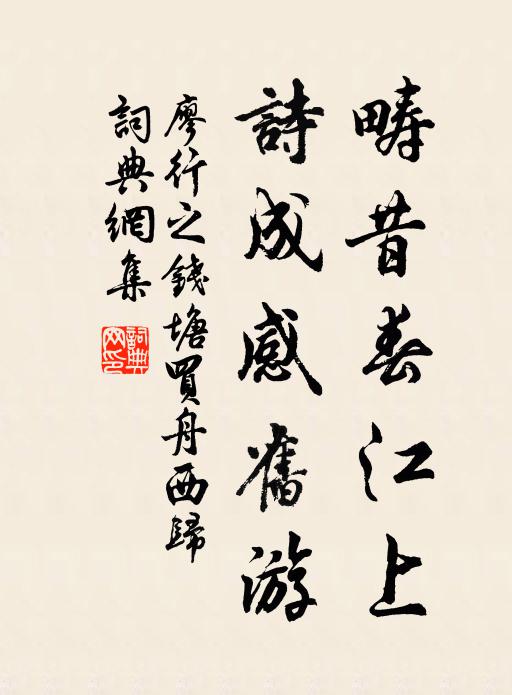 疇昔春江上
詩成感舊游
廖行之錢塘買舟西歸
詞典網集
詞典網印